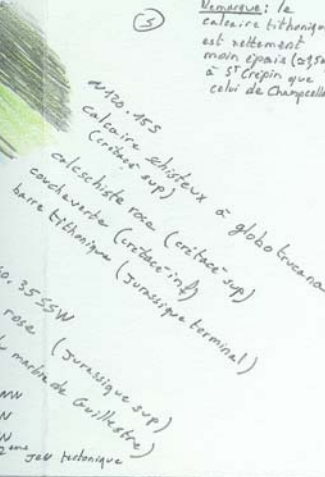 5
Remarque: le
calcaire tithonique
est nettement
moin épais (≈15m)
à St Crépin que
celui de Champcella
N120.15S
calcaire schisteux à globotruncana
(crétacé-sup)
calcschiste rose (crétacé-sup)
couche verte (crétacé-inf)
barre tithonique (Jurassique terminal)
0.35SSW
rose (Jurassique sup)
marbre de Guillestre)
NW
N
W
2eme jeu tectonique